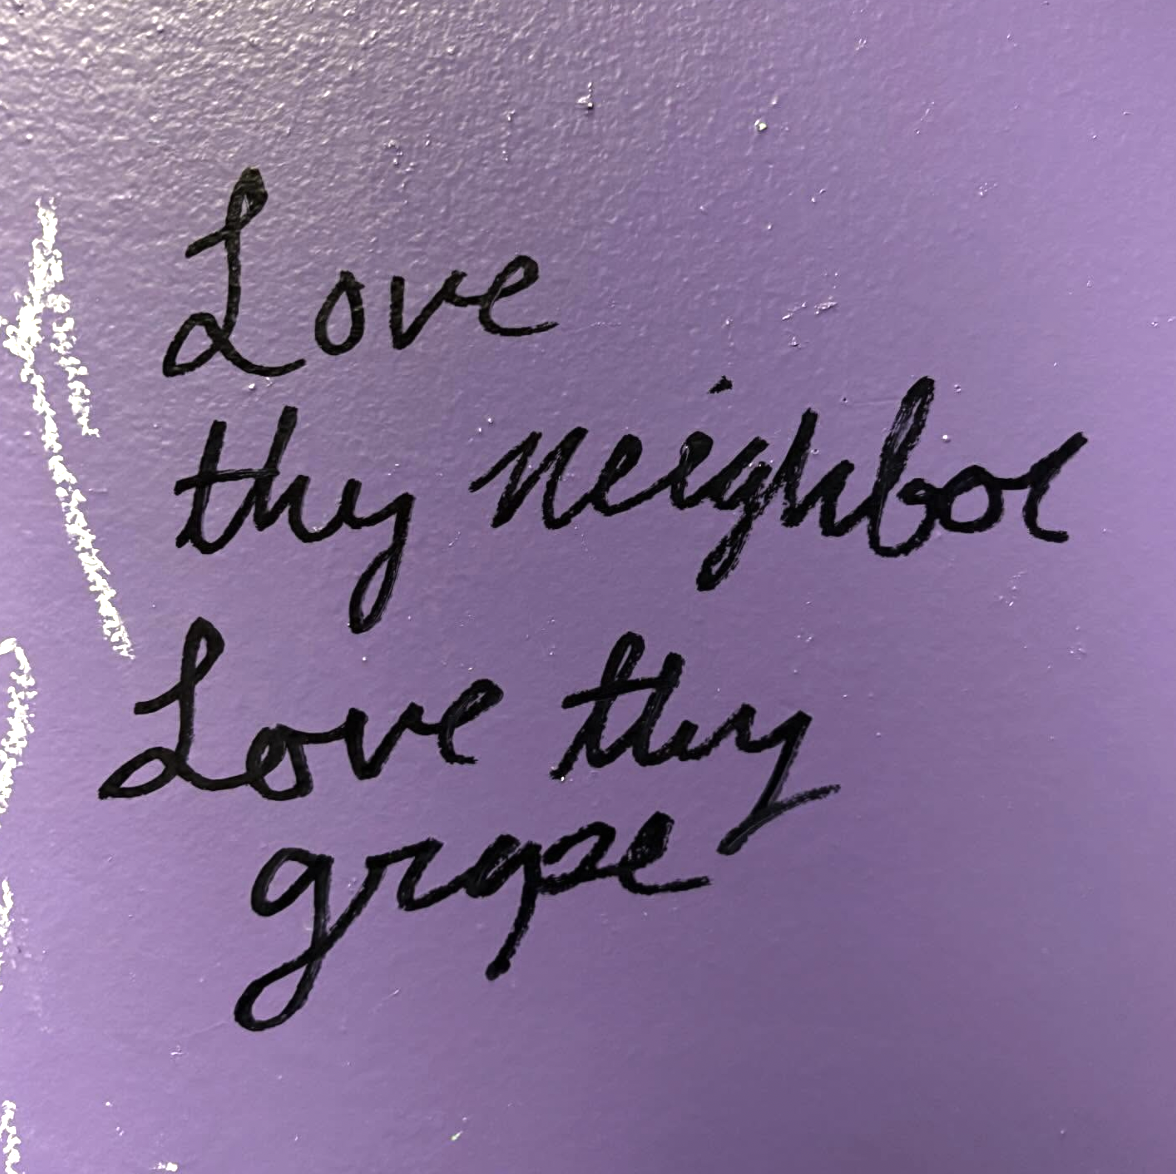 Love
thy neighbor
Love thy
grape